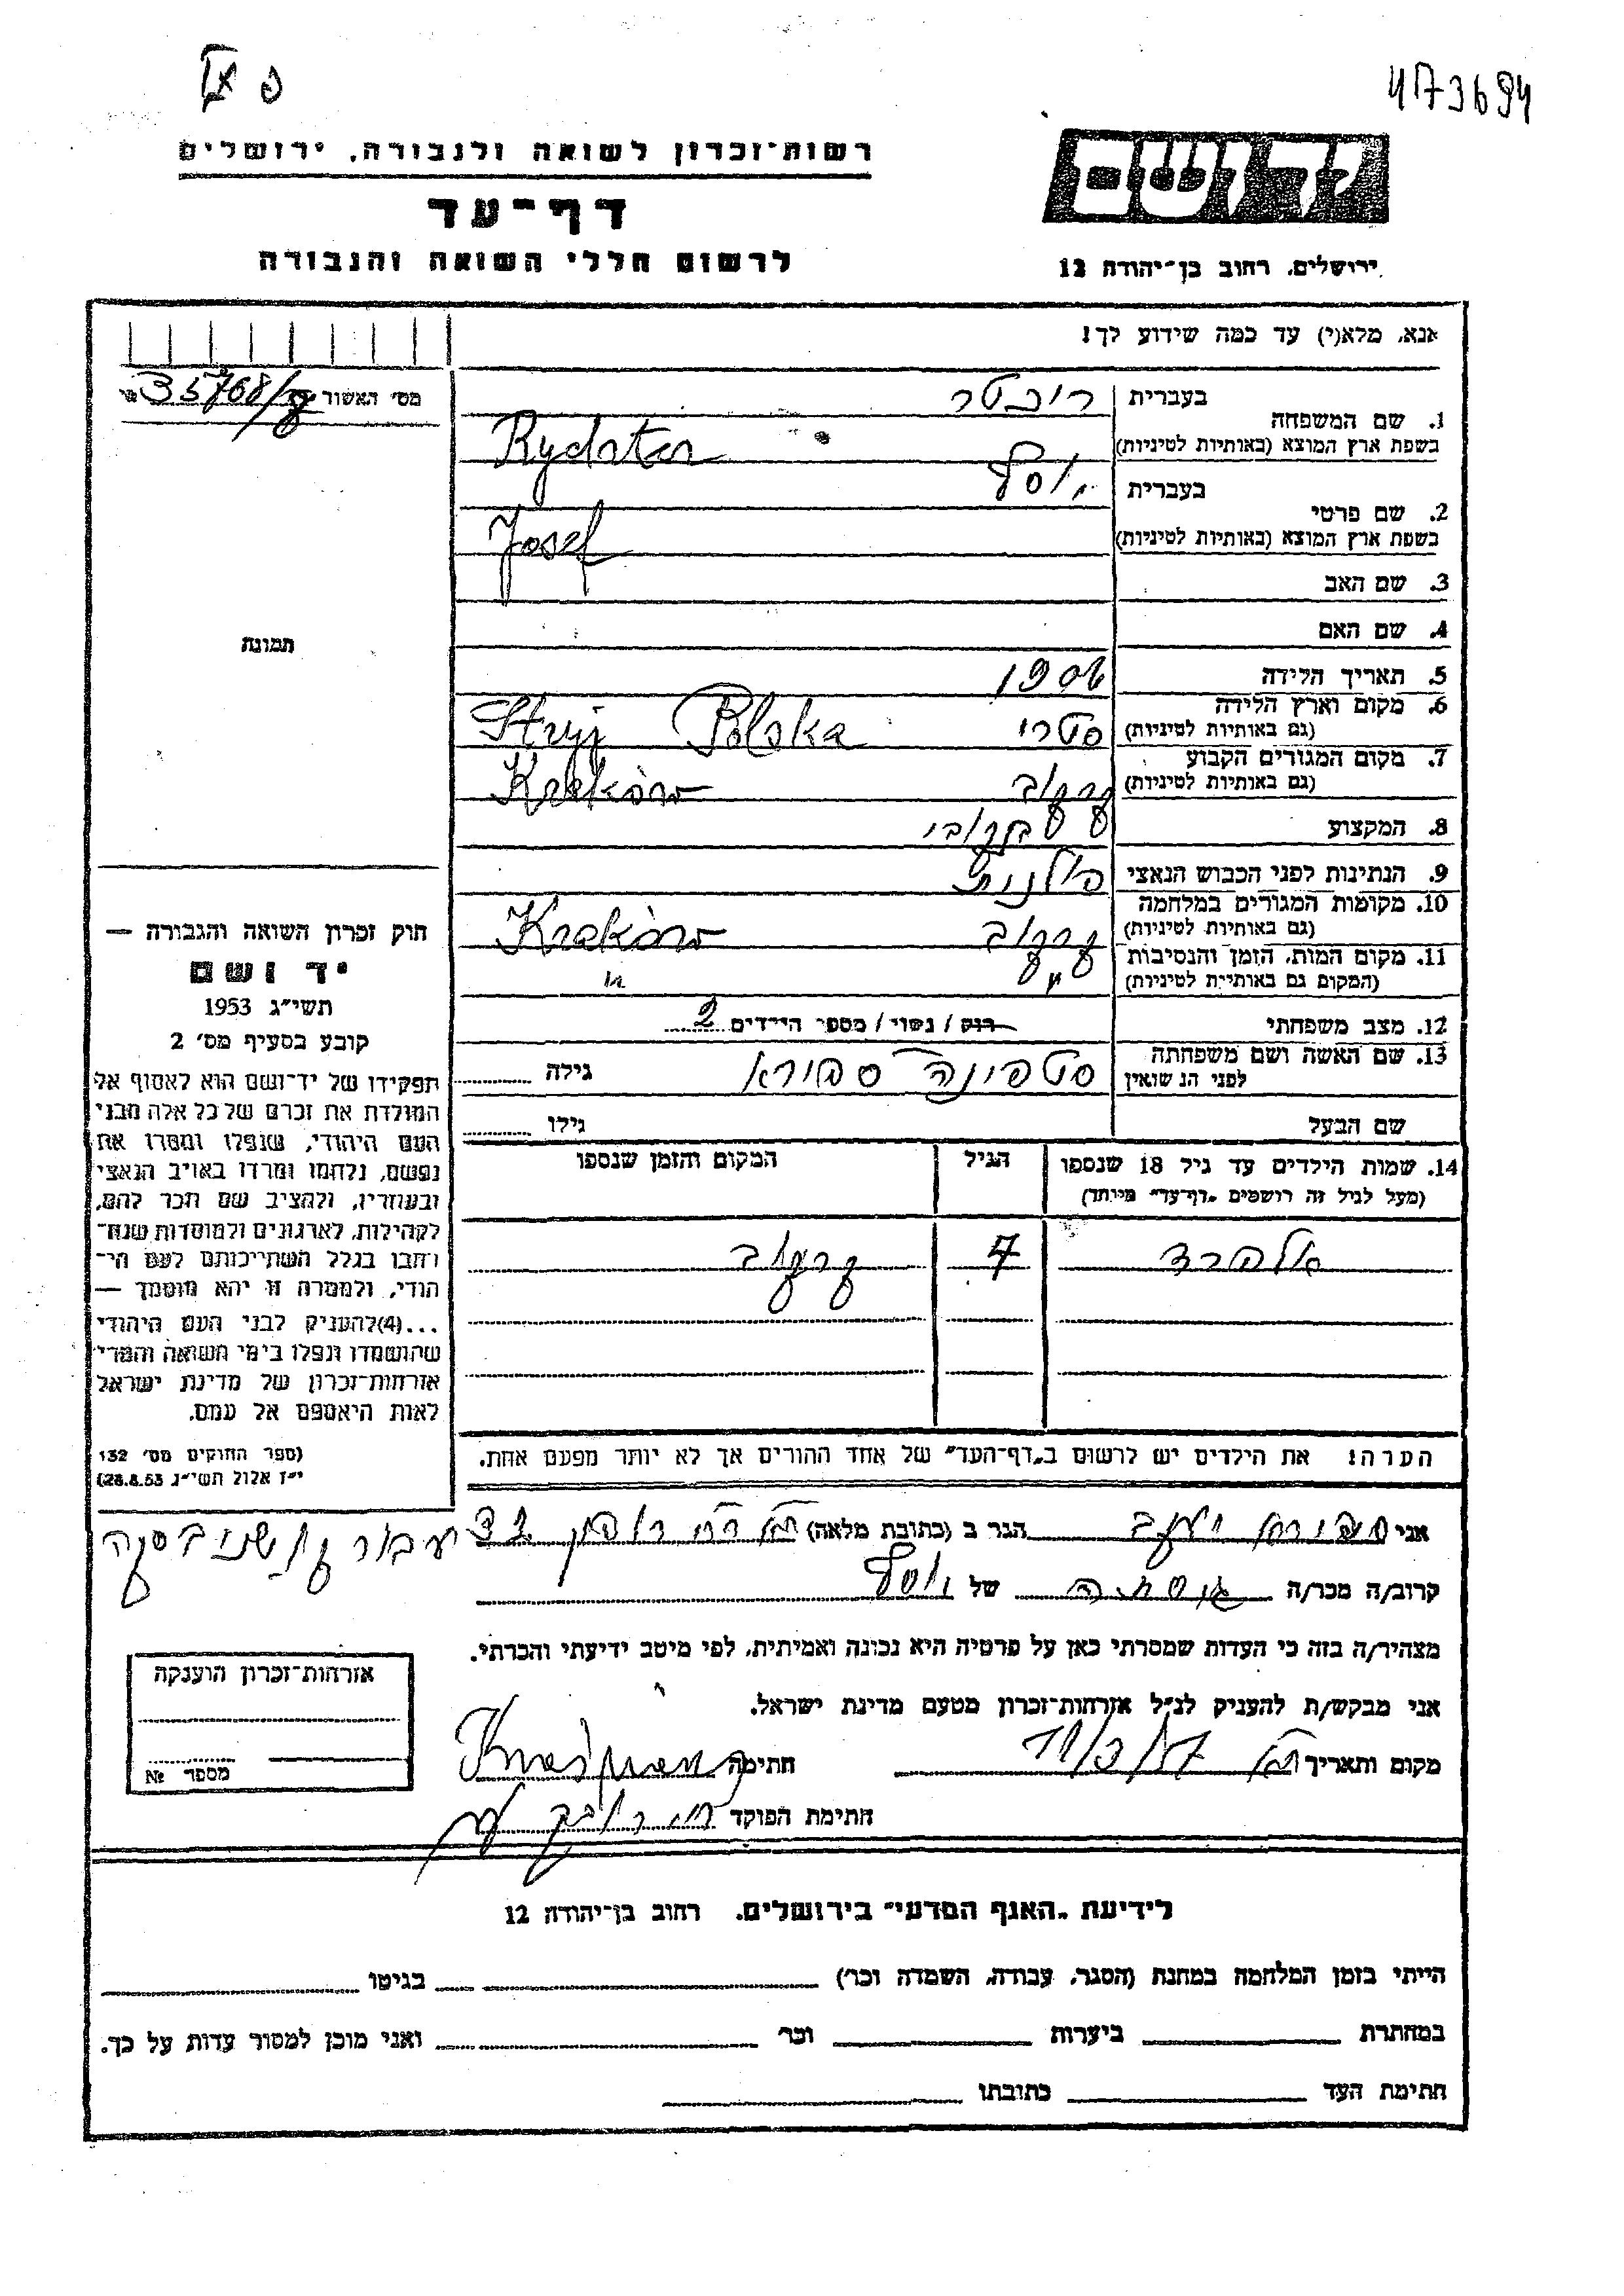 פ
473694
רשות־זכרון לשואה ולגבורה, ירושלים
דף־עד
לרשום חללי השואה והגבורה
יד ושם
ירושלים, רחוב בן־יהודה 12
אנא, מלא(י) עד כמה שידוע לך!
מס׳ האשור 35768/
1. שם המשפחה
בעברית
בשפת ארץ המוצא (באותיות לטיניות)
Rychter
2. שם פרטי
בעברית יוסף
בשפת ארץ המוצא (באותיות לטיניות)
Josef
3. שם האב
4. שם האם
תמונה
5. תאריך הלידה 1906
6. מקום וארץ הלידה
(גם באותיות לטיניות) סטרי Stryj Polska
7. מקום המגורים הקבוע
(גם באותיות לטיניות) קרקוב Kraków
8. המקצוע
9. הנתינות לפני הכבוש הנאצי פולנית
10. מקומות המגורים במלחמה
(גם באותיות לטיניות) קרקוב Kraków
11. מקום המות, הזמן והנסיבות
(המקום גם באותיות לטיניות)
12. מצב משפחתי רוק / נשוי / מספר הילדים 2
13. שם האשה ושם משפחתה
לפני הנשואין סטפניה ספירא גילה
שם הבעל גילו
14. שמות הילדים עד גיל 18 שנספו
(מעל לגיל זה רושמים „דף־עד״ מיוחד)
הגיל
המקום והזמן שנספו
אלפרד 7 קרקוב
הערה: את הילדים יש לרשום ב„דף־העד״ של אחד ההורים אך לא יותר מפעם אחת.
חוק זכרון השואה והגבורה —
יד ושם
תשי״ג 1953
קובע בסעיף מס׳ 2
תפקידו של יד־ושם הוא לאסוף אל
המולדת את זכרם של כל אלה מבני
העם היהודי, שנפלו ומסרו את
נפשם, נלחמו ומרדו באויב הנאצי
ובעוזריו, ולהציב שם וזכר להם,
לקהילות, לארגונים ולמוסדות שנח־
רבו בגלל השתייכותם לעם הי־
הודי, ולמטרה זו יהא מוסמך —
...(4)להעניק לבני העם היהודי
שהושמדו ונפלו בימי השואה והמרי
אזרחות־זכרון של מדינת ישראל
לאות היאספם אל עמם.
(ספר החוקים מס׳ 132
י״ז אלול תשי״ג 28.8.53)
אני ספירא יעקב הגר ב (כתובת מלאה)
קרוב/ה מכר/ה של יוסף
מצהיר/ה בזה כי העדות שמסרתי כאן על פרטיה היא נכונה ואמיתית, לפי מיטב ידיעתי והכרתי.
אני מבקש/ת להעניק לנ״ל אזרחות־זכרון מטעם מדינת ישראל.
מקום ותאריך חתימה
חתימת הפוקד
אזרחות־זכרון הוענקה
מספר №
לידיעת „האגף המדעי״ בירושלים, רחוב בן־יהודה 12
הייתי בזמן המלחמה במחנה (הסגר, עבודה, השמדה וכו׳) בגיטו
במחתרת ביערות וכו׳ ואני מוכן למסור עדות על כך.
חתימת העד כתובתו